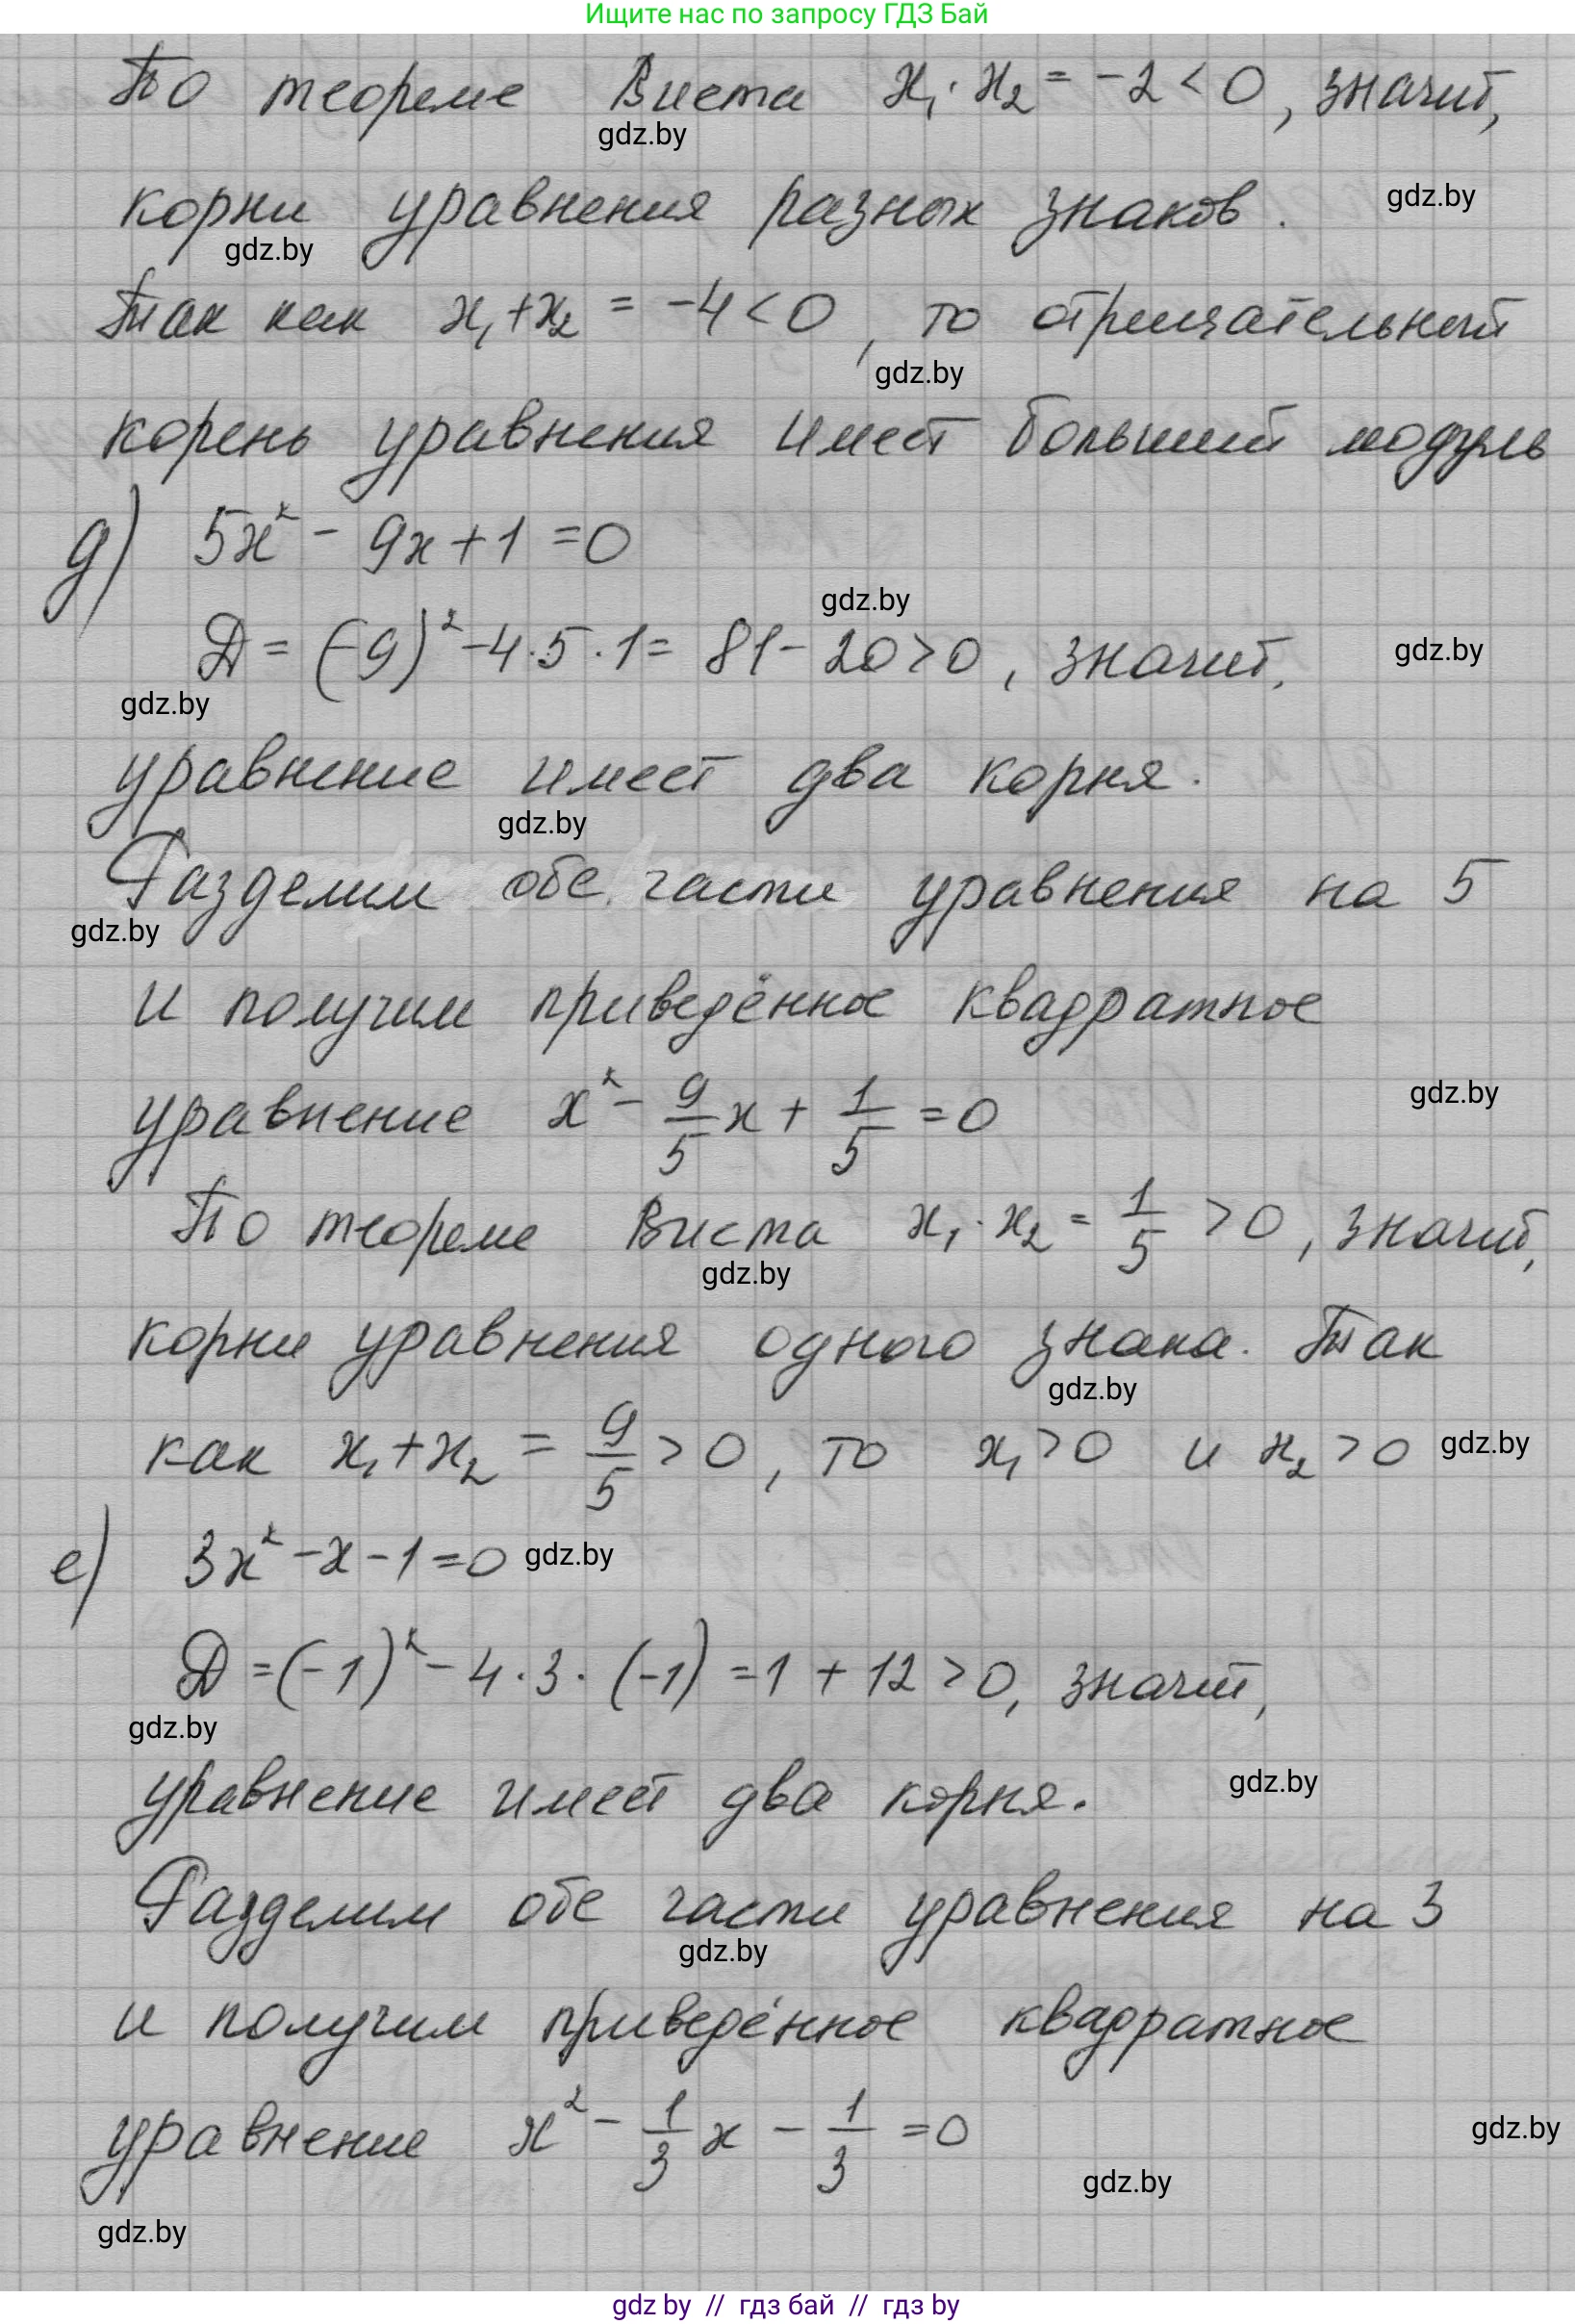 Ищите нас по запросу ГДЗ Бай
По теореме Виета x₁·x₂ = -2 < 0, значит,
gdz.by
корни уравнения разных знаков.
gdz.by
gdz.by
Так как x₁+x₂ = -4 < 0, то отрицательный
gdz.by
корень уравнения имеет больший модуль
д) 5x² - 9x + 1 = 0
gdz.by
D = (-9)² - 4·5·1 = 81 - 20 > 0, значит,
gdz.by
gdz.by
уравнение имеет два корня.
gdz.by
Разделим обе части уравнения на 5
gdz.by
и получим приведённое квадратное
уравнение x² - 9/5 x + 1/5 = 0
gdz.by
По теореме Виета x₁·x₂ = 1/5 > 0, значит,
gdz.by
корни уравнения одного знака. Так
gdz.by
как x₁+x₂ = 9/5 > 0, то x₁ > 0 и x₂ > 0
gdz.by
е) 3x² - x - 1 = 0
gdz.by
D = (-1)² - 4·3·(-1) = 1 + 12 > 0, значит,
gdz.by
уравнение имеет два корня.
gdz.by
Разделим обе части уравнения на 3
gdz.by
и получим приведённое квадратное
уравнение x² - 1/3 x - 1/3 = 0
gdz.by
gdz.by
gdz.by
gdz by // гдз бай // гдз by